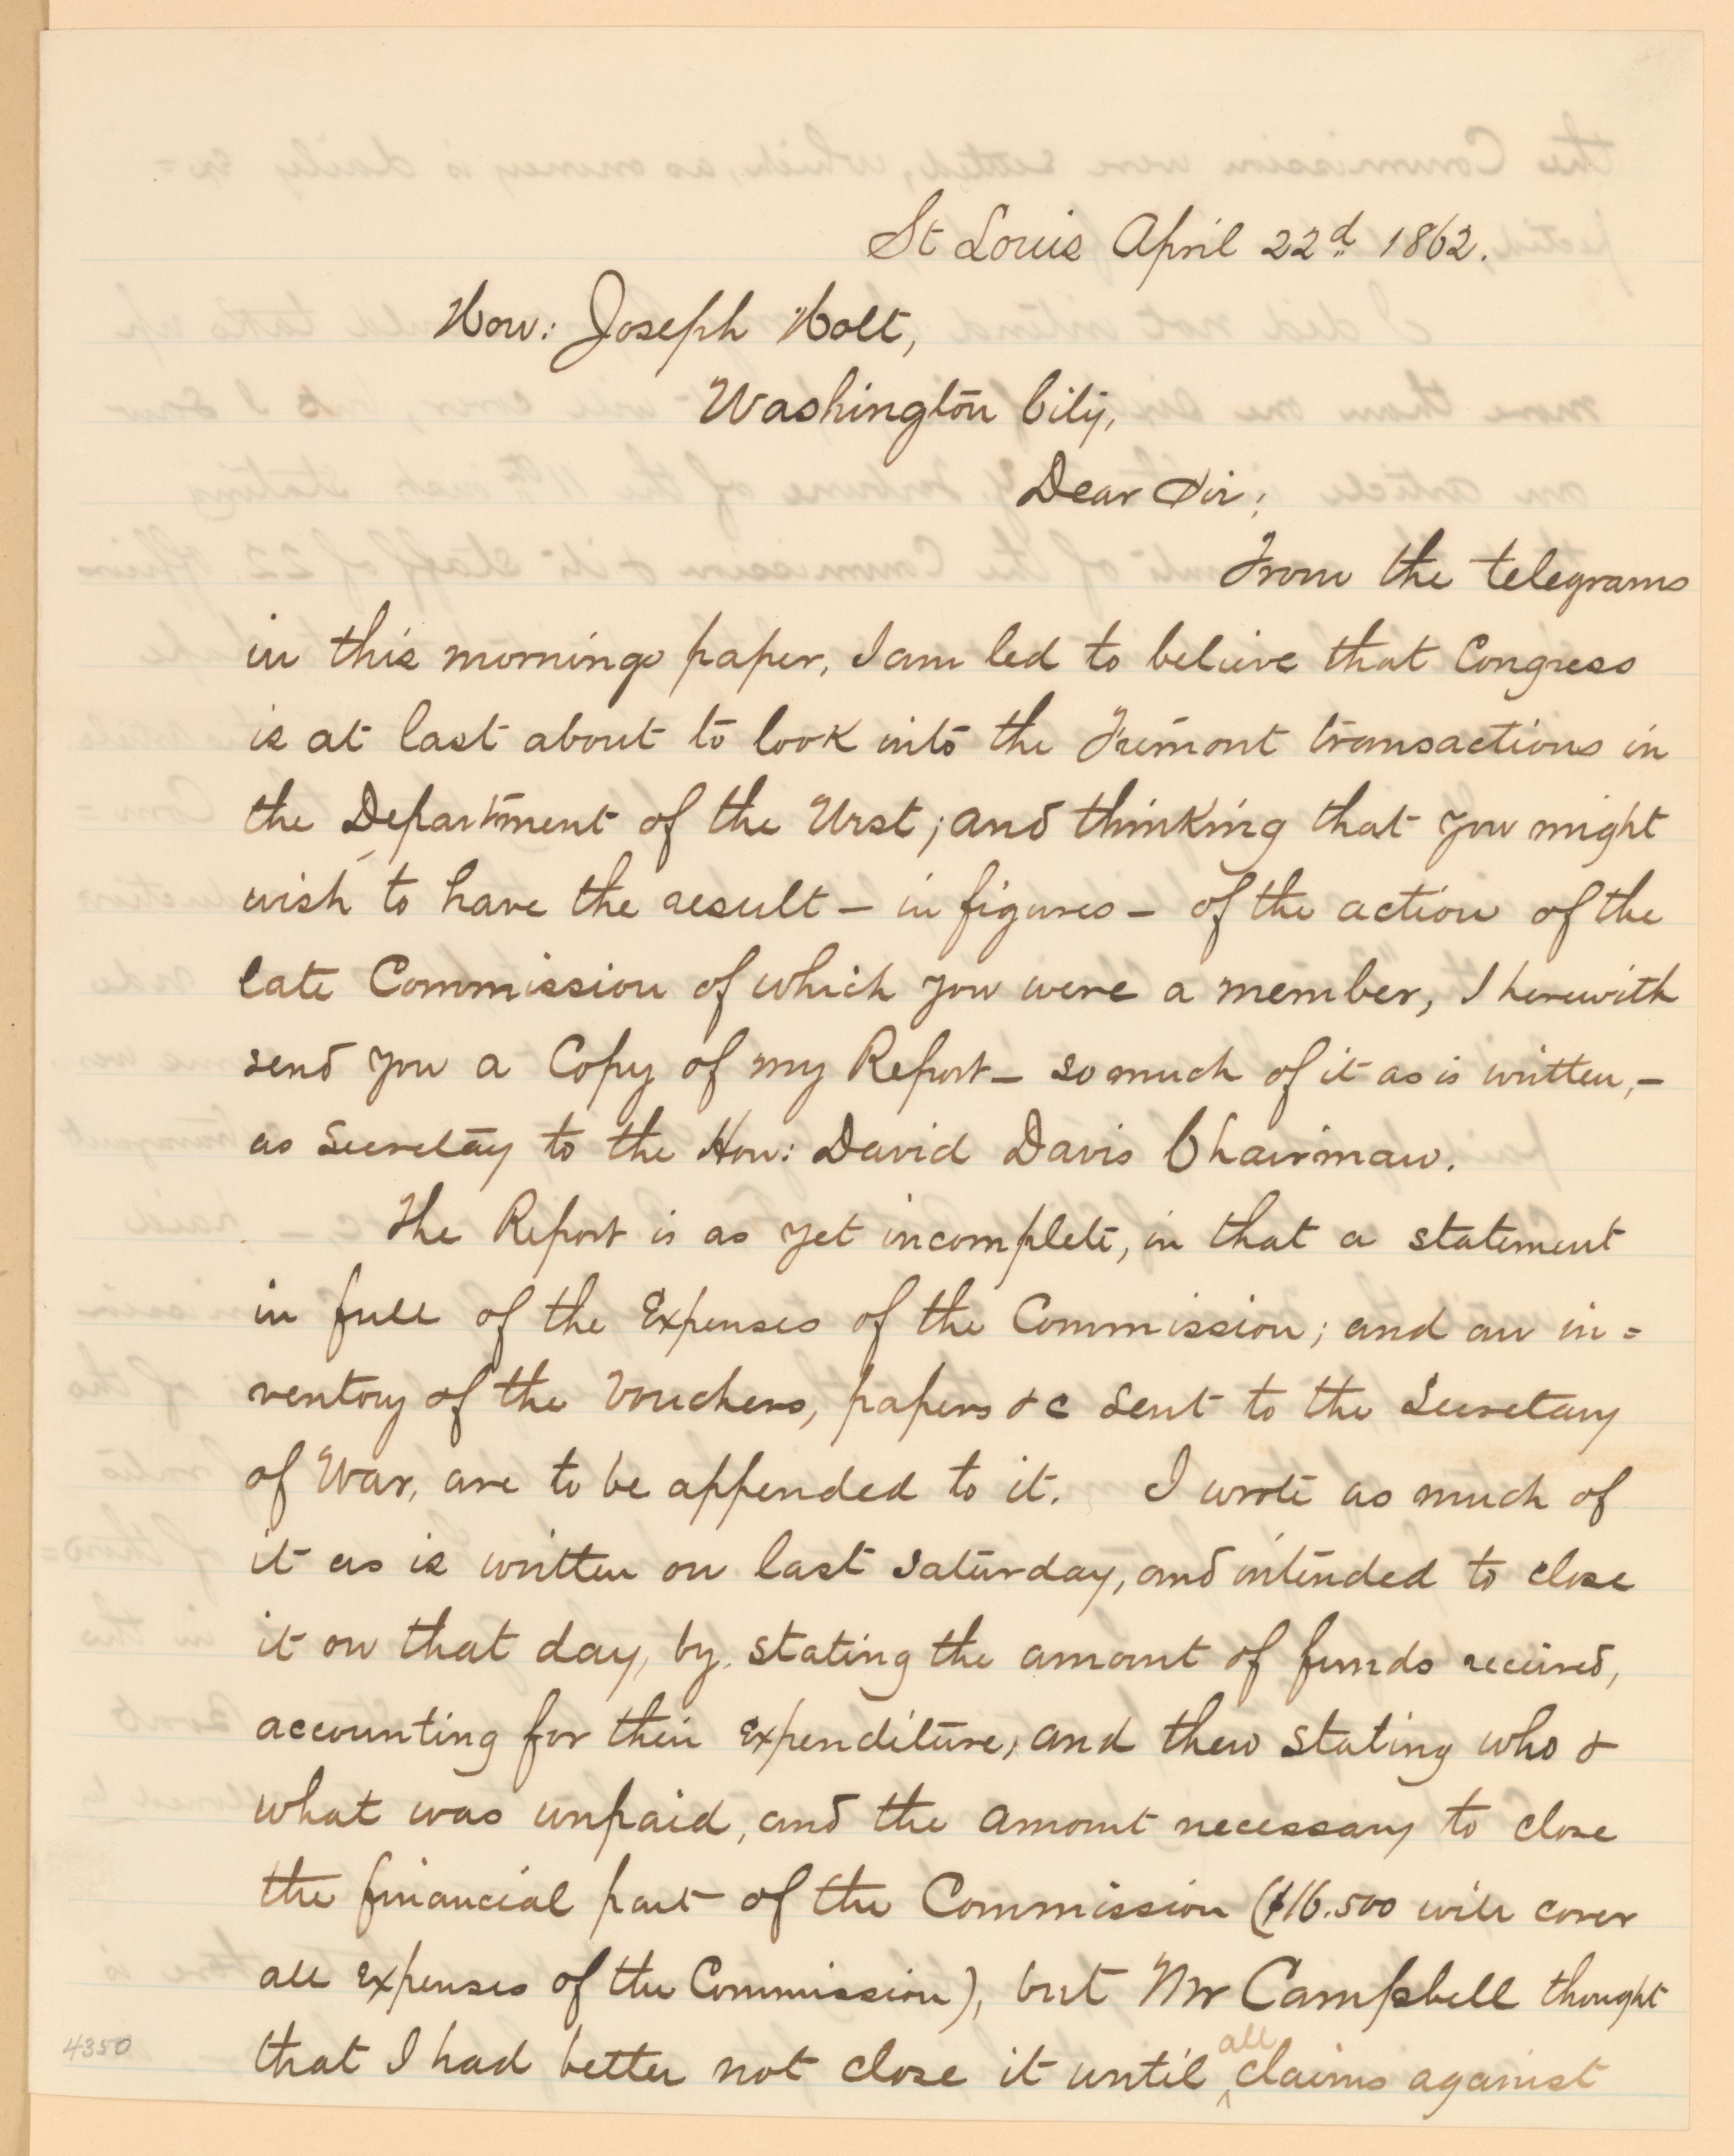 St Louis April 22d 1862.
Hon: Joseph Holt,
Washington City,
Dear Sir:
From the telegrams
in this mornings paper, I am led to believe that Congress
is at last about to look into the Fremont transactions in
the Department of the West; and thinking that you might
wish to have the result – in figures – of the action of the
late Commission of which you were a member, I herewith
send you a Copy of my Report – so much of it as is written, –
as Secretary to the Hon: David Davis Chairman.
The Report is as yet incomplete, in that a statement
in full of the Expenses of the Commission; and an in=
ventory of the Vouchers, papers &c sent to the Secretary
of War, are to be appended to it. I wrote as much of
it as is written on last Saturday, and intended to close
it on that day, by stating the amount of funds received,
accounting for their expenditure, and then stating who &
what was unpaid, and the amount necessary to close
the financial part of the Commission ($16.500 will cover
all expenses of the Commission), but Mr Campbell thought
that I had better not close it until all claims against
4350